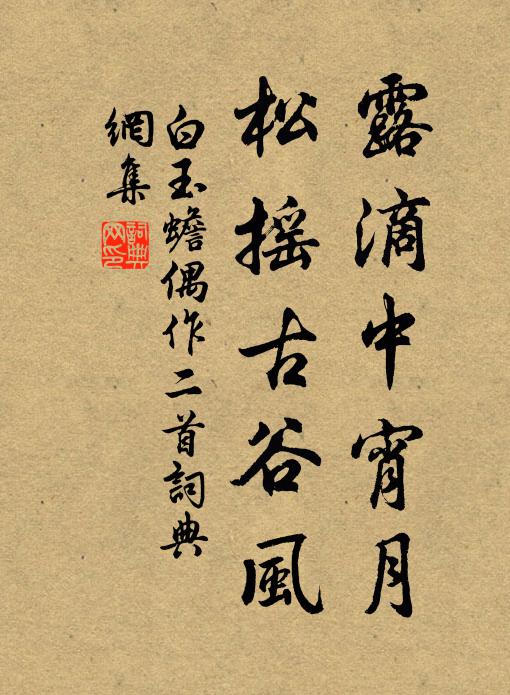 露滴中宵月
松摇古谷風
白玉蟾偶作二首詞典
網集
詞典
网印